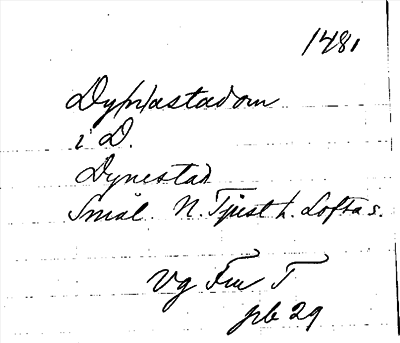 1481
Dy/n/astadom
i D.
Dynestad
Smål. N. Tjust h. Lofta s.
Vg Fru T
pb 29